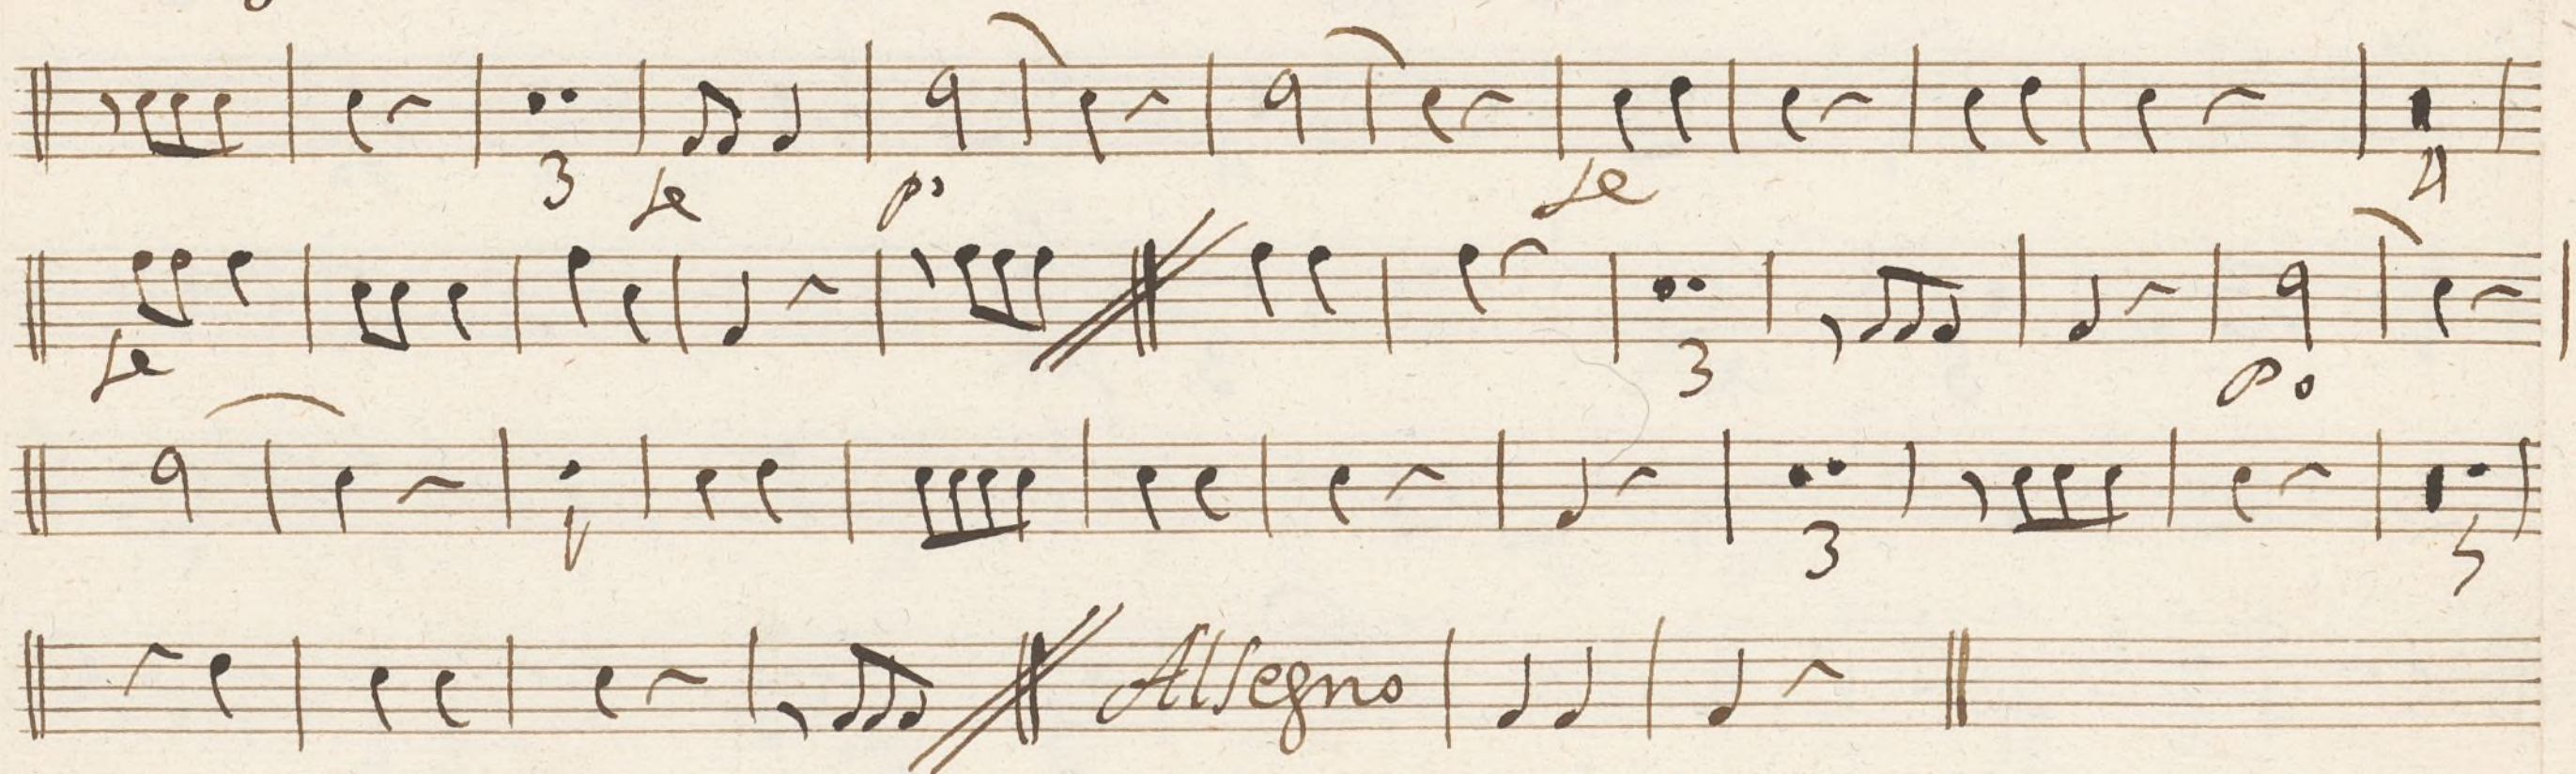 3 fe p: fe 4
fe 3 po
1 3 5
Al Segno